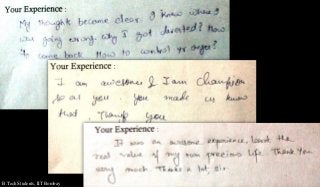 Your Experience :
My thought become clear. I know where I
was going wrong. why I got diverted? How
to come back. How to control my anger?
Your Experience :
I am awesome & I am Champion
so as you you made us know
that. Thank you
Your Experience :
It was an awesome experience, learnt the
real value of my own precious life. Thank You
very much. Thanks a lot, Sir.
B. Tech Students, IIT Bombay